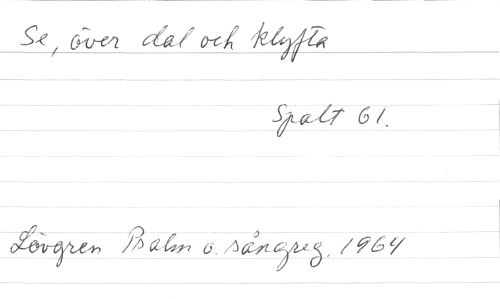 Se, över dal och klyfta
Spalt 61.
Lövgren Psalm o. sångreg. 1964